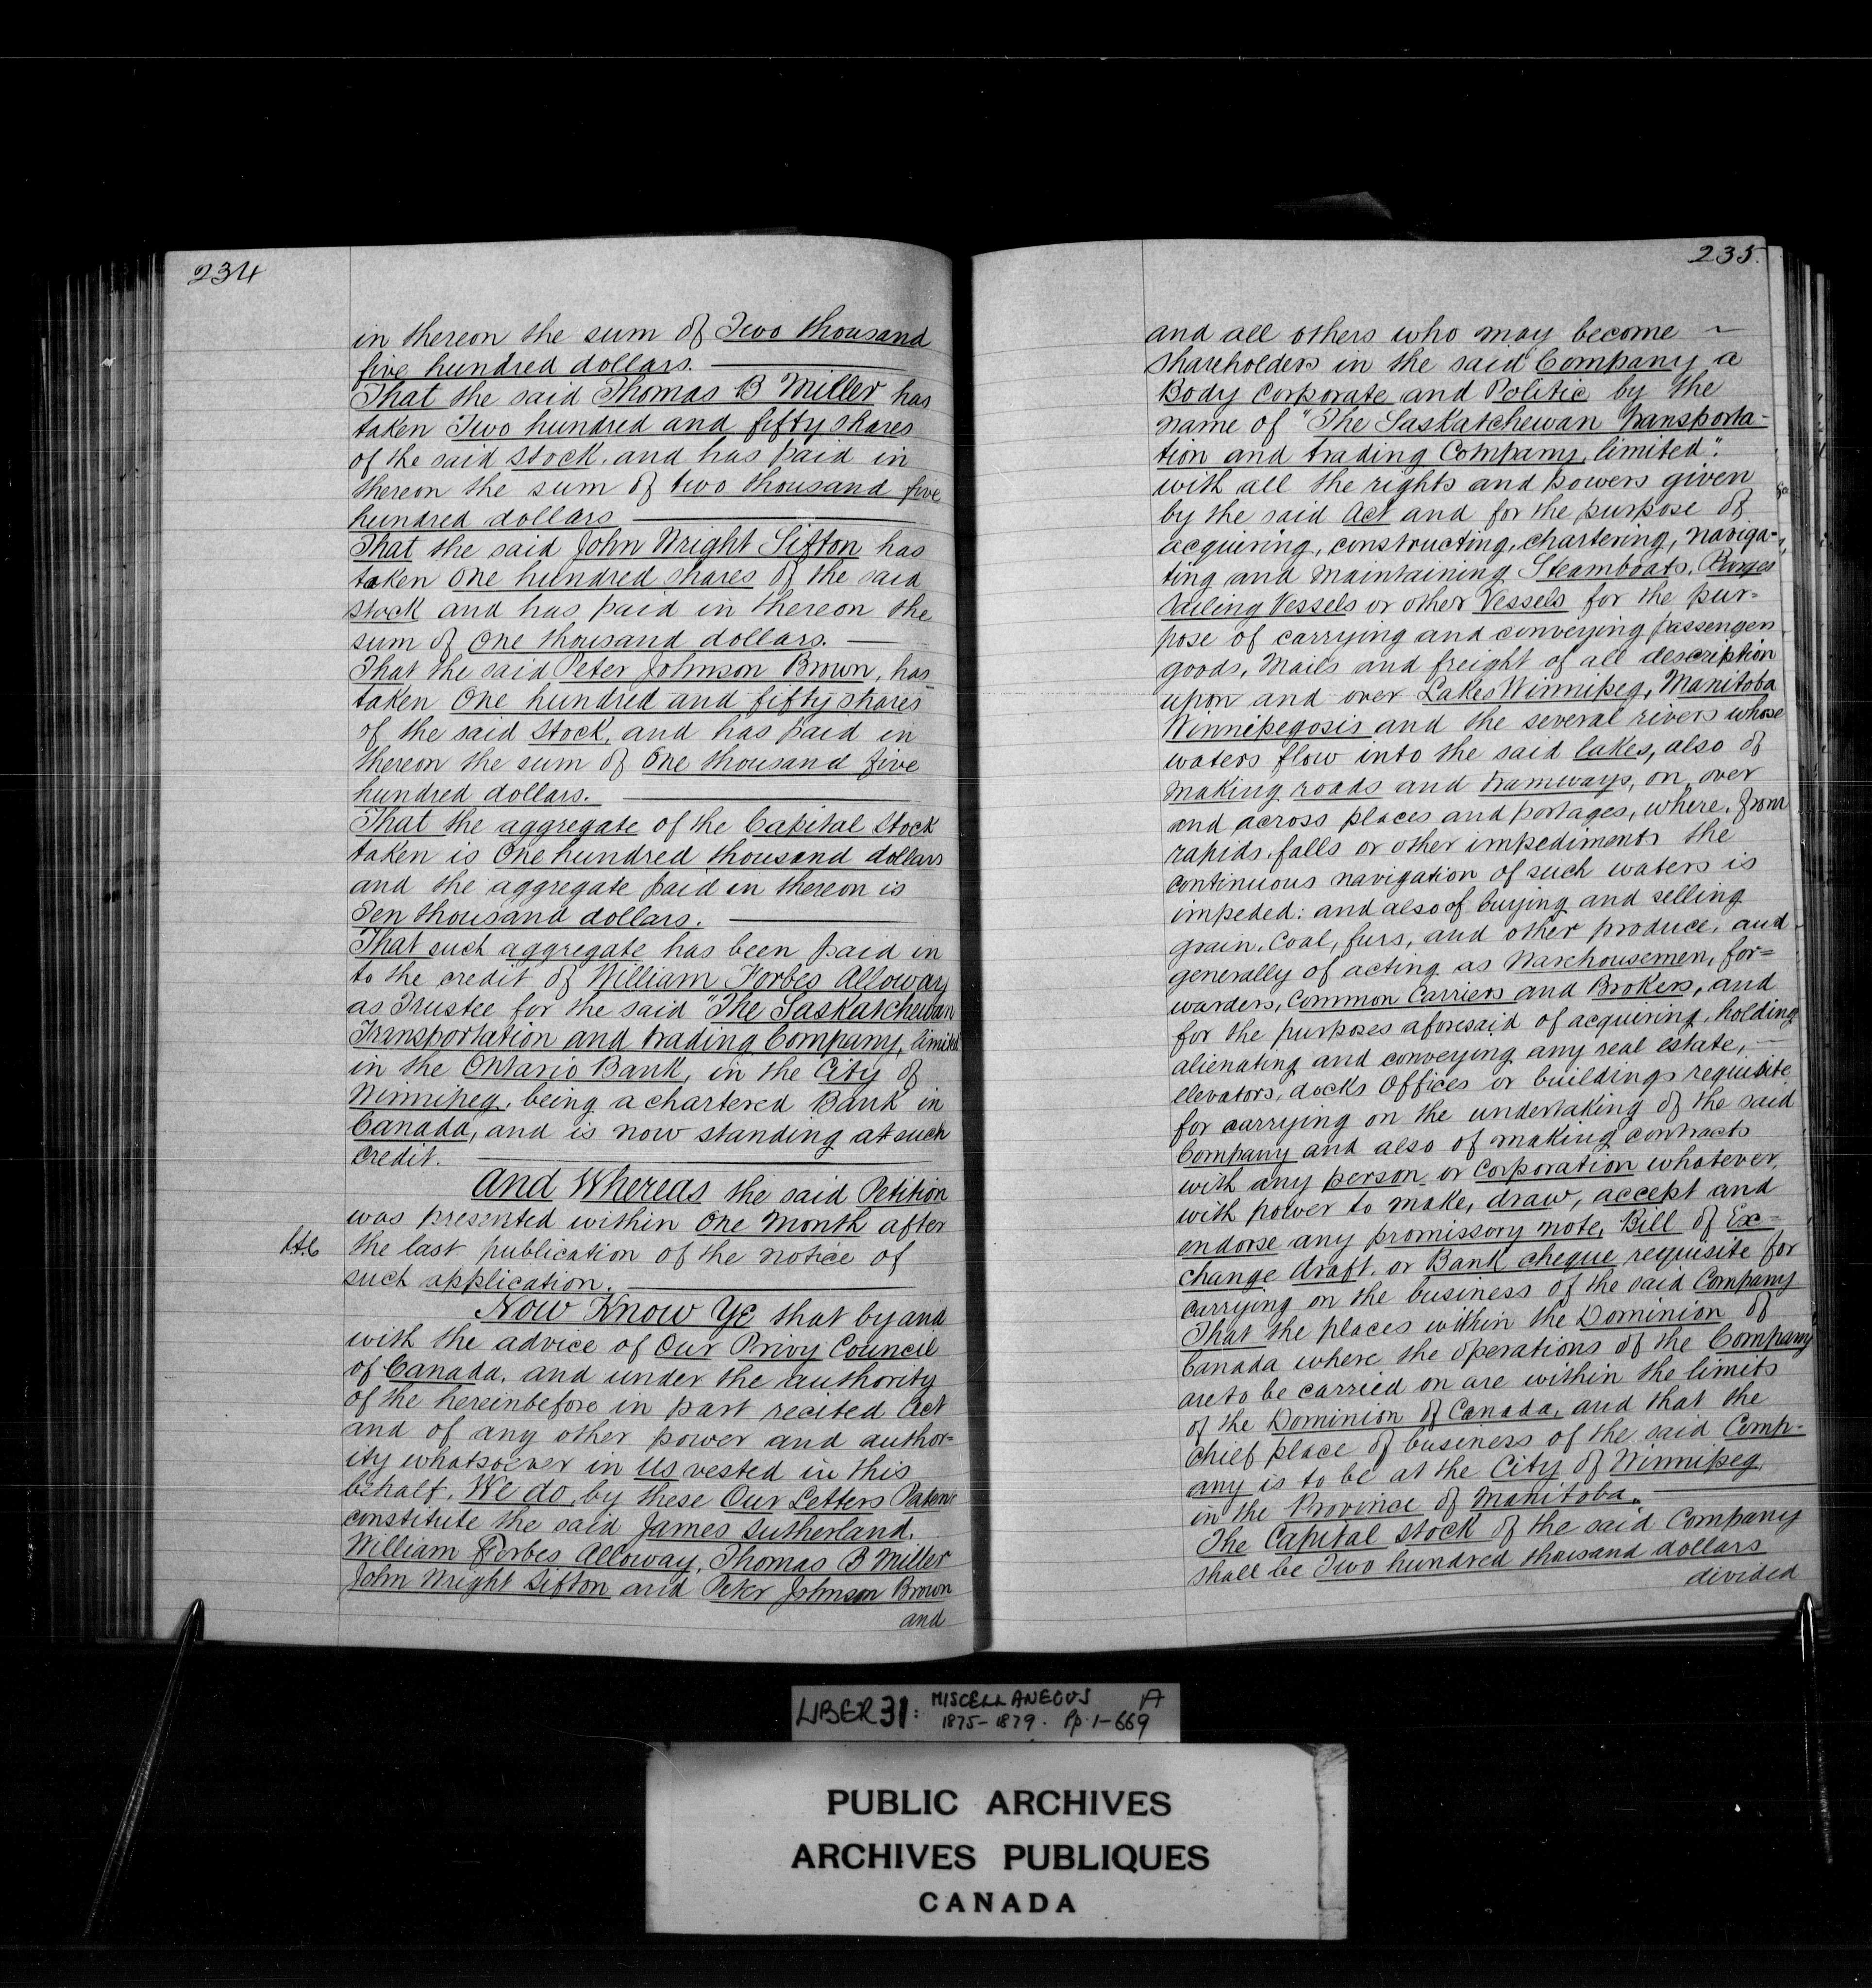 234
in thereon the sum of Two thousand
five hundred dollars.
That the said Thomas B Miller has
taken Two hundred and fifty shares
of the said stock, and has paid in
thereon the sum of two thousand five
hundred dollars
That the said John Wright Sifton has
taken one hundred shares of the said
stock and has paid in thereon the
sum of one thousand dollars.
That the said Peter Johnson Brown, has
taken One hundred and fifty shares
of the said stock, and has paid in
thereon the sum of One thousand five
hundred dollars.
That the aggregate of the Capital Stock
taken is One hundred thousand dollars
and the aggregate paid in thereon is
Ten thousand dollars.
That such aggregate has been paid in
to the credit of William Forbes Alloway
as Trustee for the said "The Saskatchewan
Transportation and trading Company, limited
in the Ontario Bank, in the City of
Winnipeg, being a chartered Bank in
Canada, and is now standing at such
credit.
And Whereas the said Petition
was presented within One Month after
the last publication of the notice of
such application.
Now Know Ye that by and
with the advice of Our Privy Council
of Canada, and under the authority
of the hereinbefore in part recited Act
and of any other power and author=
ity whatsoever in Us vested in this
behalf, We do, by these Our Letters Patent
constitute the said James Sutherland,
William Forbes Alloway, Thomas B Miller
John Wright Sifton and Peter Johnson Brown
and
235.
and all others who may become ~
shareholders in the said Company a
Body Corporate and Politic by the
name of "The Saskatchewan Transporta-
tion and trading Company, limited".
with all the rights and powers given
by the said Act and for the purpose of
acquiring, constructing, chartering, naviga-
ting and maintaining Steamboats, Barges
Sailing Vessels or other Vessels for the pur=
pose of carrying and conveying passengers
goods, Mails and freight of all description
upon and over Lakes Winnipeg, Manitoba
Winnipegosis and the several rivers whose
waters flow into the said lakes, also of
making roads and tramways, on, over
and across places and portages, where, from
rapids, falls or other impediments the
continuous navigation of such waters is
impeded: and also of buying and selling
grain, Coal, furs, and other produce, and
generally of acting as Warehousemen, for=
warders, Common Carriers and Brokers, and
for the purposes aforesaid of acquiring, holding
alienating and conveying any real estate,
elevators, docks Offices or buildings requisite
for carrying on the undertaking of the said
Company and also of making contracts
with any person or Corporation whatever,
with power to make, draw, accept and
endorse any promissory note, Bill of Ex=
change draft, or Bank cheque requisite for
carrying on the business of the said Company
That the places within the Dominion of
Canada where the operations of the Company
are to be carried on are within the limits
of the Dominion of Canada, and that the
chief place of business of the said Comp-
any is to be at the City of Winnipeg,
in the Province of Manitoba.
The Capital Stock of the said Company
shall be Two hundred thousand dollars
divided
LIBER 31: MISCELLANEOUS A
1875-1879. Pp. 1-669
PUBLIC ARCHIVES
ARCHIVES PUBLIQUES
CANADA